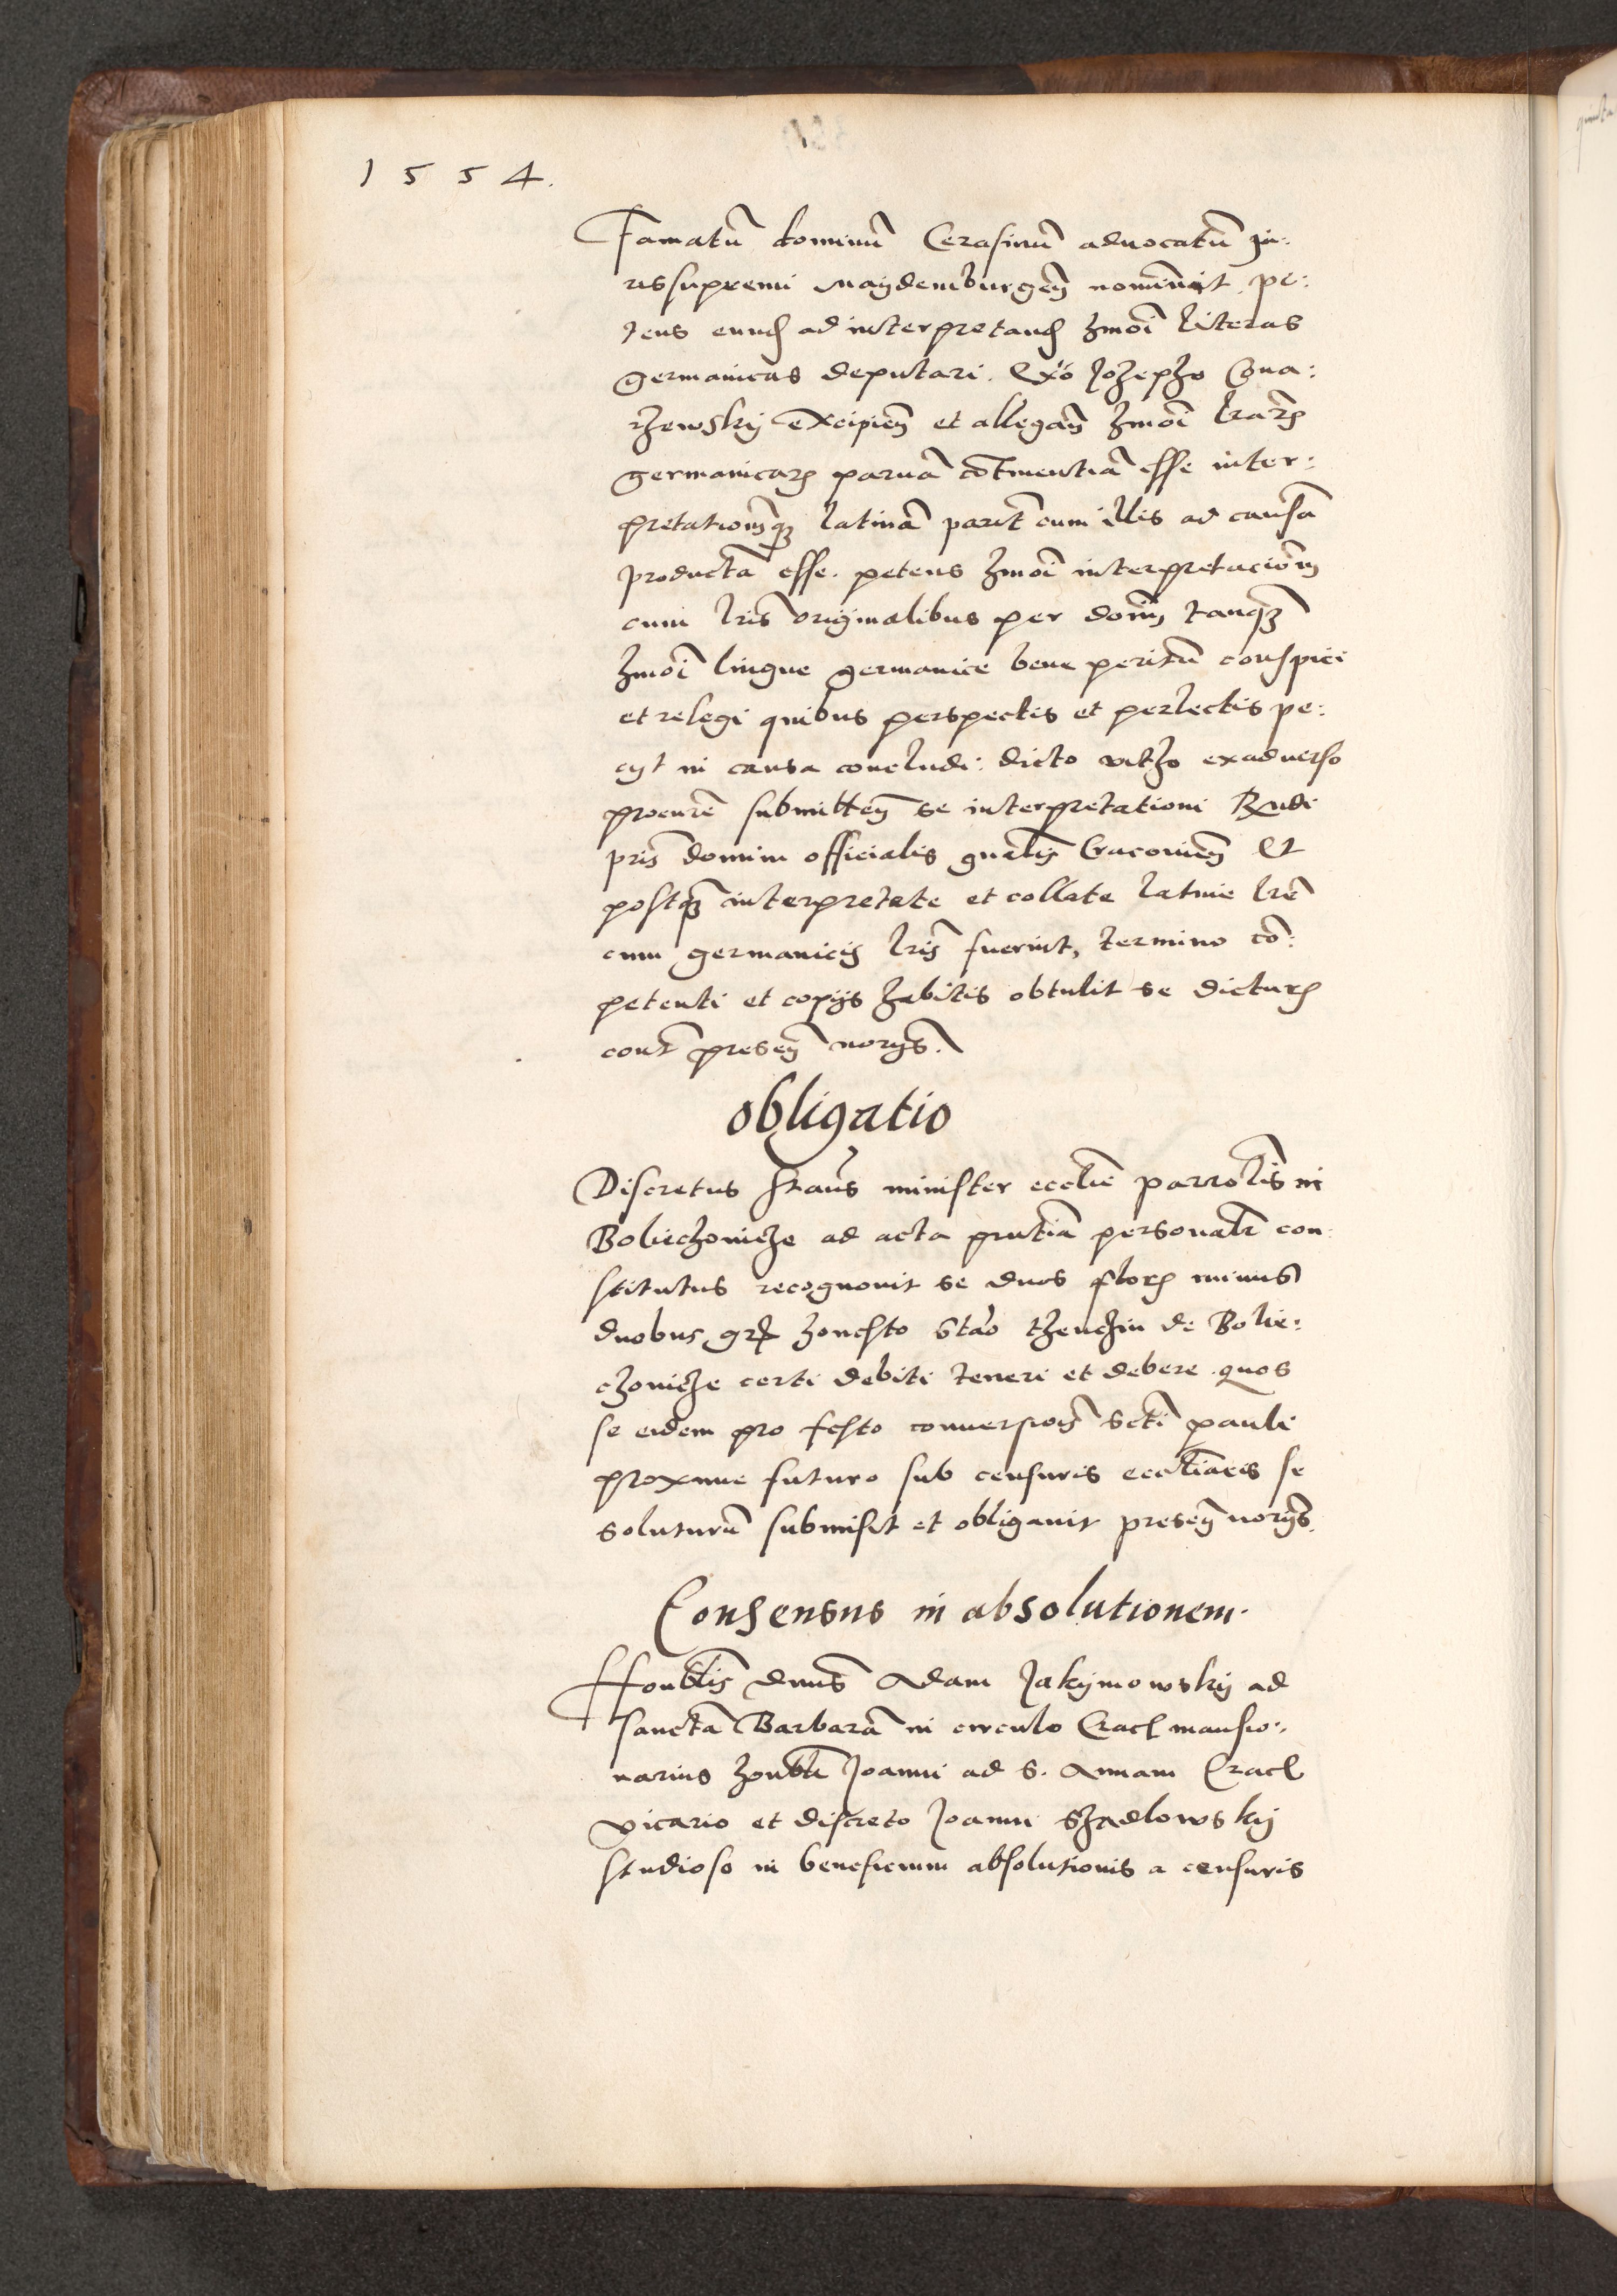 1554.
Famatū dominū Cerasinū aduocatū Ju:
ris supremi Maydemburgeñ nominauit pe:
tens eund ad interpretand hmoi literas
germanicas deputari. Josepho
excipieñ et allegañ hmoi lrarum
germanicarum paruā esse inter:
pretationemque latinā parit cum illis ad causā
productā esse. petens hmoi interpretacionem
cum lris originalibus per tanquam
hmoi lingue germanice bene peritū conspici
et relegi quibus perspectis et perlectis pe:
cyt in causa concludi: dicto exaduerso
procure submitteñ se interpretationi Rndi
pris domini officialis gnalis Cracovieñ Et
postquam interpretate et collate latine lre
cum germanicis lris fuerint, termino cō:
petenti et copijs habitis obtulit se dicturum
cont preseñ norijs.
obligatio
Discretus Staus minister ecclie parrolis in
Bolieczouicze ad acta pntia personalr con
stitutus recognouit se duos florum minus
duobus honesto Stao de Bolie:
czouicze certi debiti teneri et debere quos
se eidem pro festo conuersionis Scti pauli
proxime futuro sub censuris ecclīacis se
soluturū submisit et obligauit preseñ norijs.
Consensus in absolutionem.
Honblis dnus Adam Jakymowsky ad
sanctā Barbarā in circulo Crac mansio:
narius honbli Joanni ad S. Annam Crac
vicario et discreto Joanni Szadlowsky
studioso in beneficium absolutionis a censuris